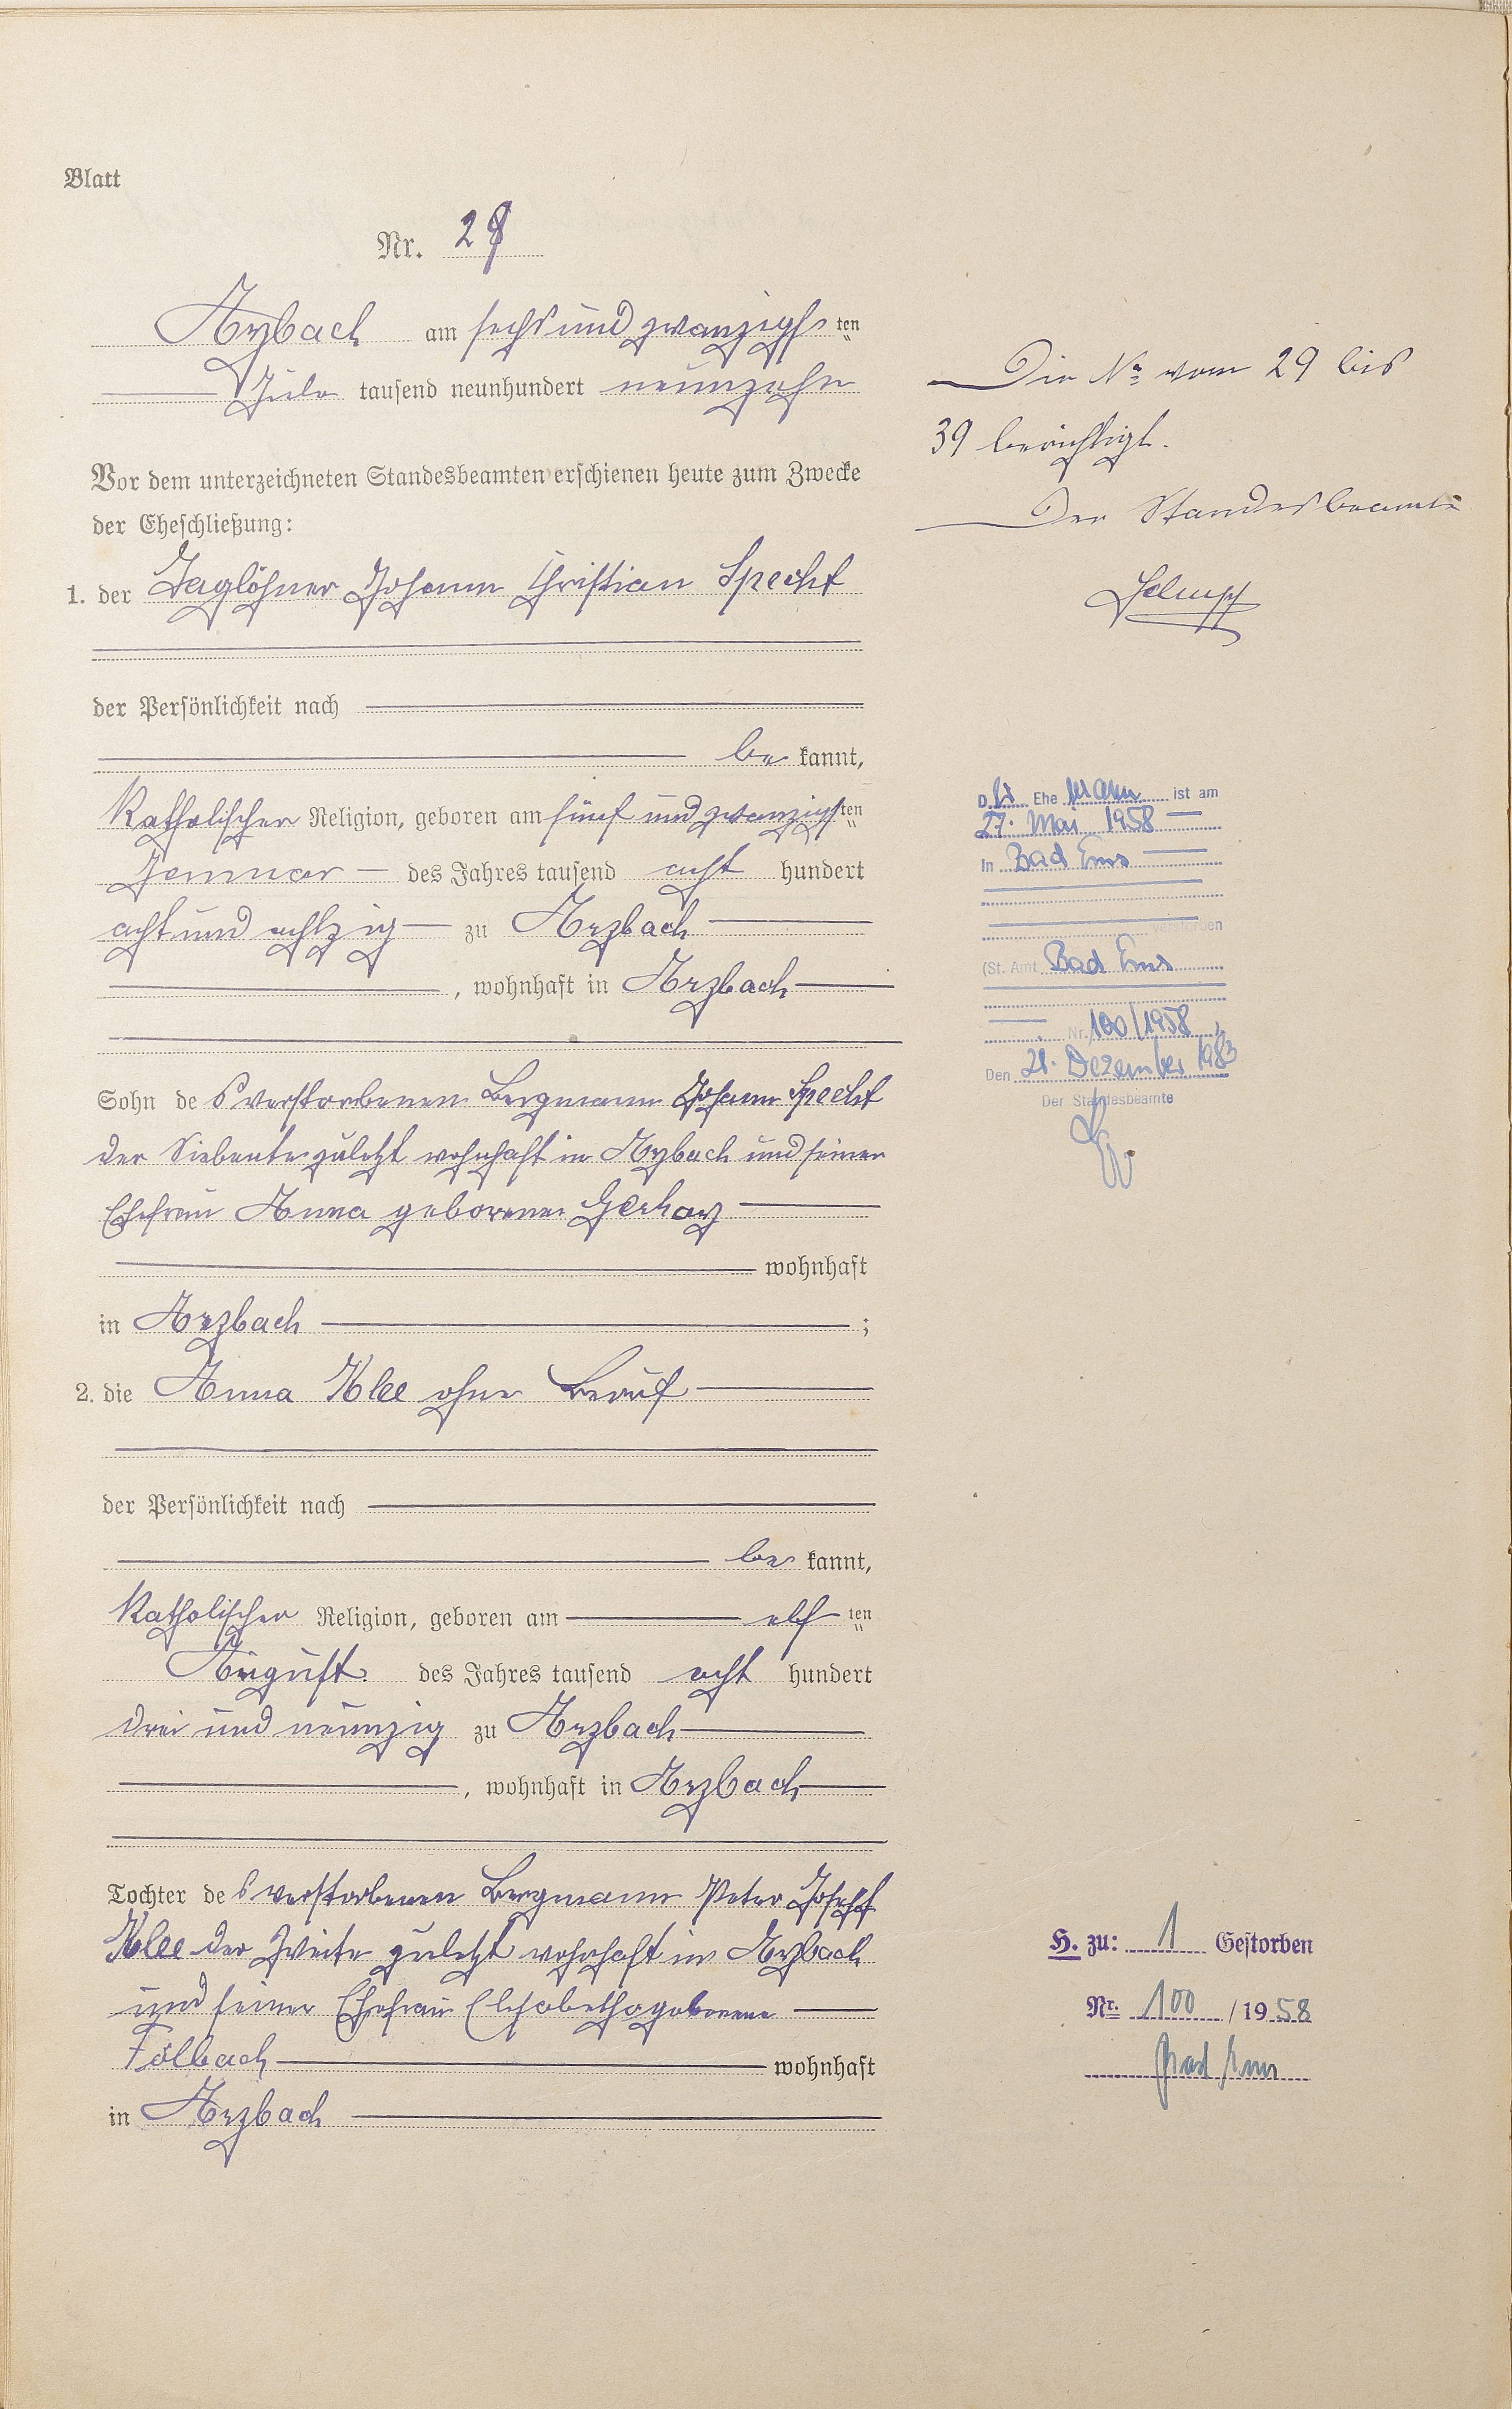 Blatt
Nr. 28
Arzbach am sechs und zwanzigsten
Juli tausend neunhundert neunzehn
Vor dem unterzeichneten Standesbeamten erschienen heute zum Zwecke
der Eheschließung:
1. der Taglöhner Johann Christian Specht
der Persönlichkeit nach
be kannt,
Katholischer Religion, geboren am fünf und zwanzigsten
Januar des Jahres tausend acht hundert
acht und achtzig zu Arzbach
, wohnhaft in Arzbach
Sohn des verstorbenen Bergmann Johann Specht
der Siebente zuletzt wohnhaft in Arzbach und seiner
Ehefrau Anna geborene Gerharz
wohnhaft
in Arzbach ;
2. die Anna Klee ohne Beruf
der Persönlichkeit nach
be kannt,
Katholischer Religion, geboren am elf ten
August des Jahres tausend acht hundert
drei und neunzig zu Arzbach
, wohnhaft in Arzbach
Tochter des verstorbenen Bergmann Peter Joseph
Klee der Zweite zuletzt wohnhaft in Arzbach
und seiner Ehefrau Elisabetha geborene
Fölbach wohnhaft
in Arzbach
Die No vom 29 bis
39 berichtigt.
Der Standesbeamte
D. Ehe mann ist am
27. Mai 1958
in Bad Ems
verstorben
(St. Amt Bad Ems
Nr. 100/1958
Den 21. Dezember 1983
Der Standesbeamte
H. zu: 1 Gestorben
Nr. 100 / 1958
Bad Ems